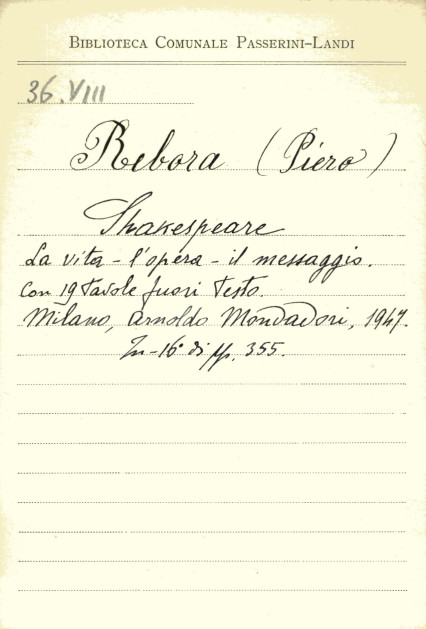 BIBLIOTECA COMUNALE PASSERINI-LANDI
36.VIII
Rebora (Piero)
Shakespeare
La vita - l'opera - il messaggio.
Con 19 tavole fuori testo.
Milano, Arnoldo Mondadori, 1947.
In-16° di pp. 355.